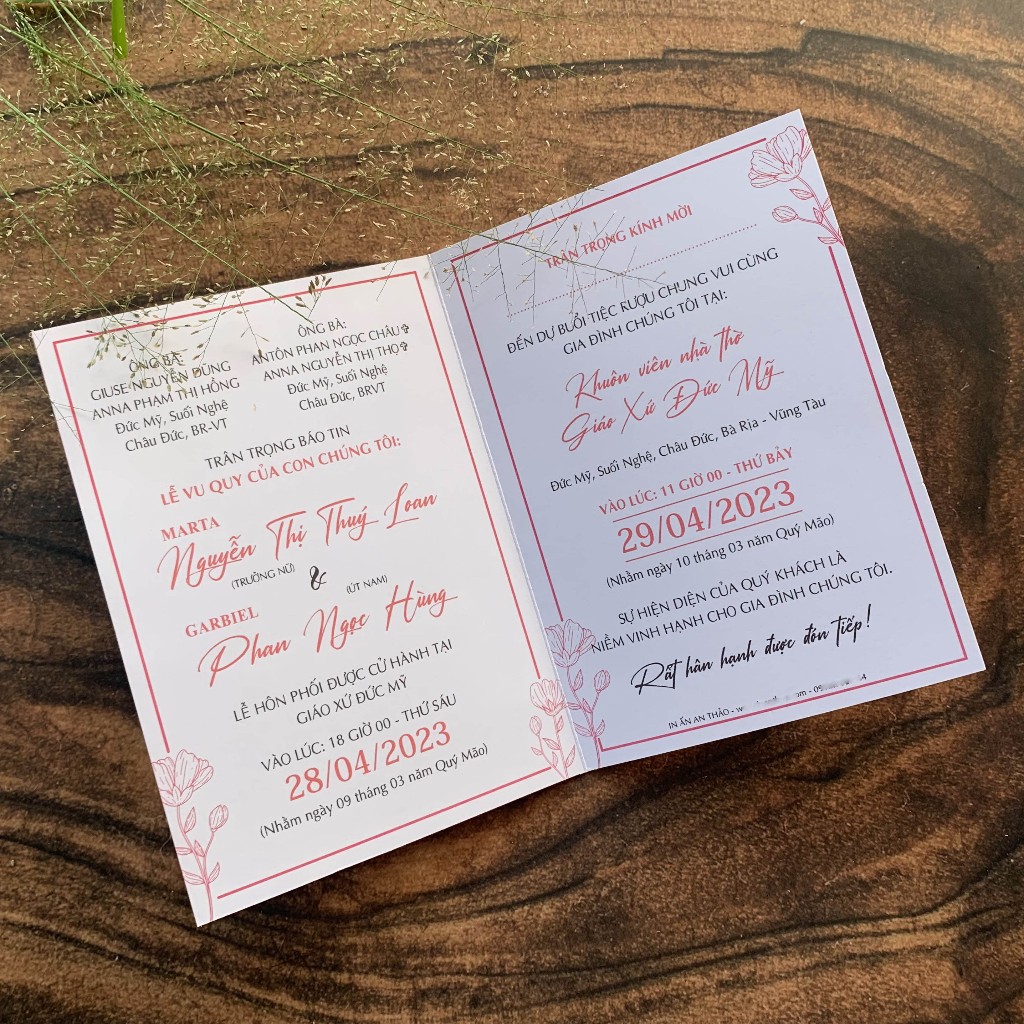 ÔNG BÀ:
GIUSE NGUYỄN DŨNG
ANNA PHẠM THỊ HỒNG
Đức Mỹ, Suối Nghệ
Châu Đức, BR-VT
ÔNG BÀ:
ANTÔN PHAN NGỌC CHÂU✞
ANNA NGUYỄN THỊ THỌ✞
Đức Mỹ, Suối Nghệ
Châu Đức, BRVT
TRÂN TRỌNG BÁO TIN
LỄ VU QUY CỦA CON CHÚNG TÔI:
MARTA
Nguyễn Thị Thuý Loan
(TRƯỞNG NỮ)
&
(ÚT NAM)
GARBIEL
Phan Ngọc Hùng
LỄ HÔN PHỐI ĐƯỢC CỬ HÀNH TẠI
GIÁO XỨ ĐỨC MỸ
VÀO LÚC: 18 GIỜ 00 - THỨ SÁU
28/04/2023
(Nhằm ngày 09 tháng 03 năm Quý Mão)
TRÂN TRỌNG KÍNH MỜI
ĐẾN DỰ BUỔI TIỆC RƯỢU CHUNG VUI CÙNG
GIA ĐÌNH CHÚNG TÔI TẠI:
Khuôn viên nhà thờ
Giáo Xứ Đức Mỹ
Đức Mỹ, Suối Nghệ, Châu Đức, Bà Rịa - Vũng Tàu
VÀO LÚC: 11 GIỜ 00 - THỨ BẢY
29/04/2023
(Nhằm ngày 10 tháng 03 năm Quý Mão)
SỰ HIỆN DIỆN CỦA QUÝ KHÁCH LÀ
NIỀM VINH HẠNH CHO GIA ĐÌNH CHÚNG TÔI.
Rất hân hạnh được đón tiếp!
IN ẤN AN THẢO -